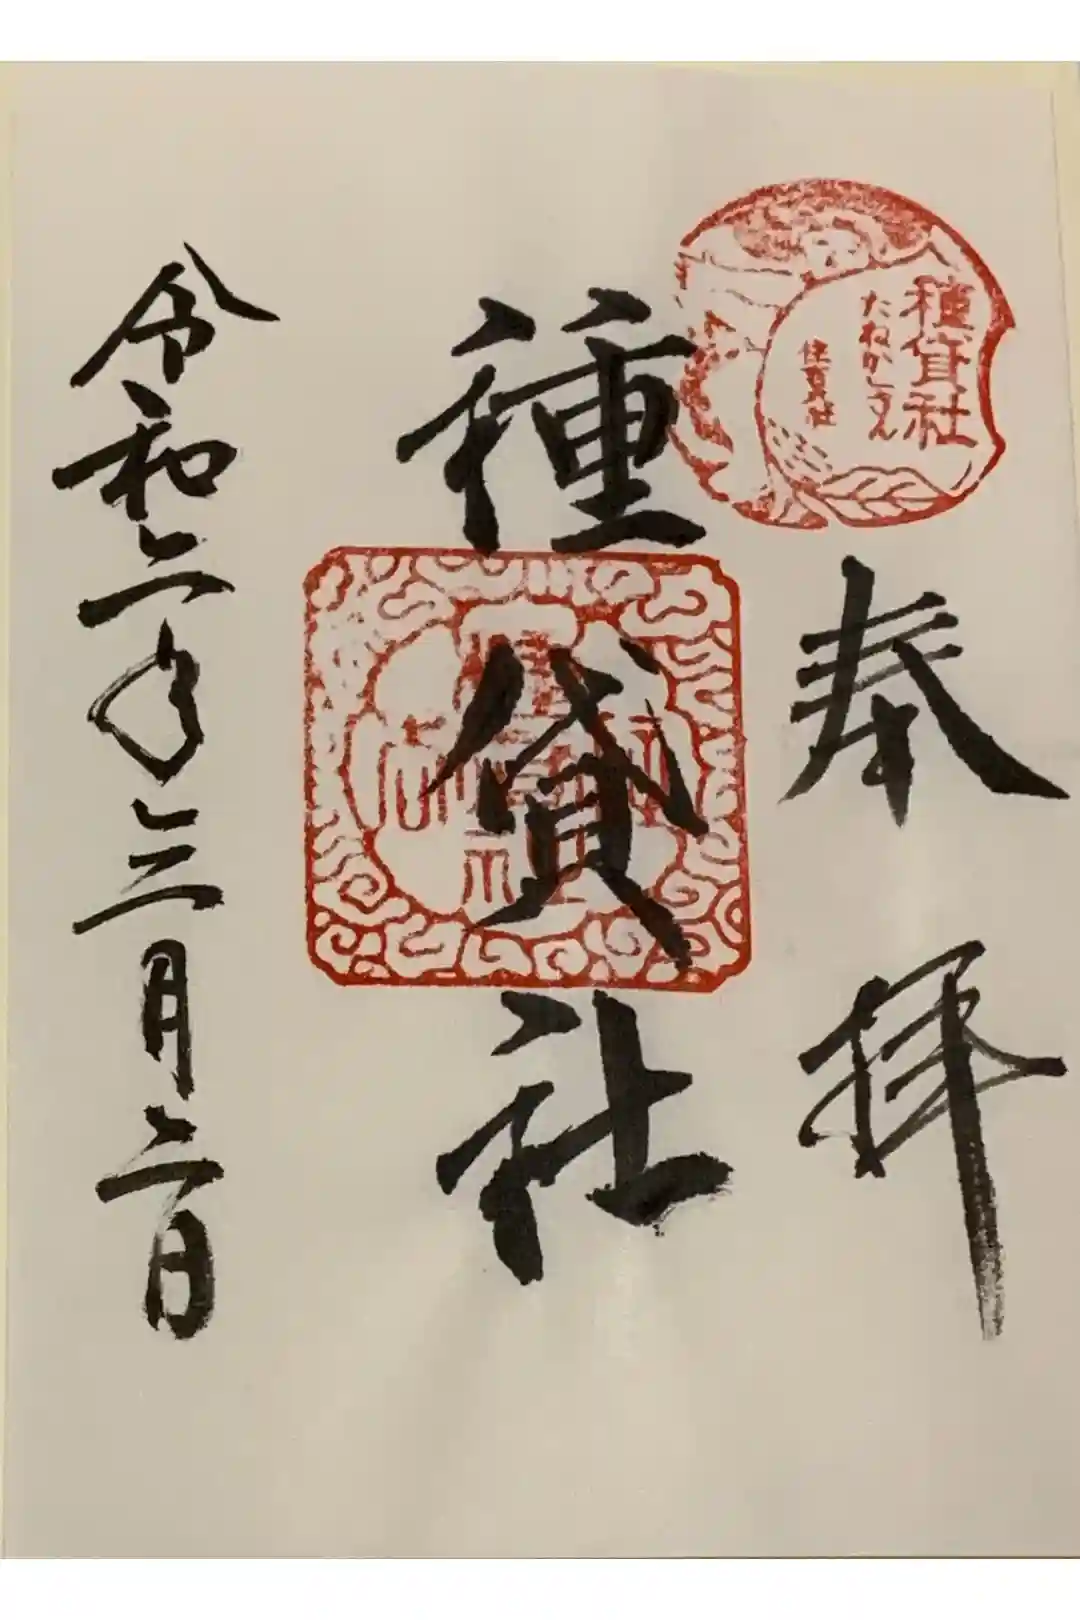 奉拝
種貸社
たねかしさん
住吉社
種貸社
令和二年三月二日